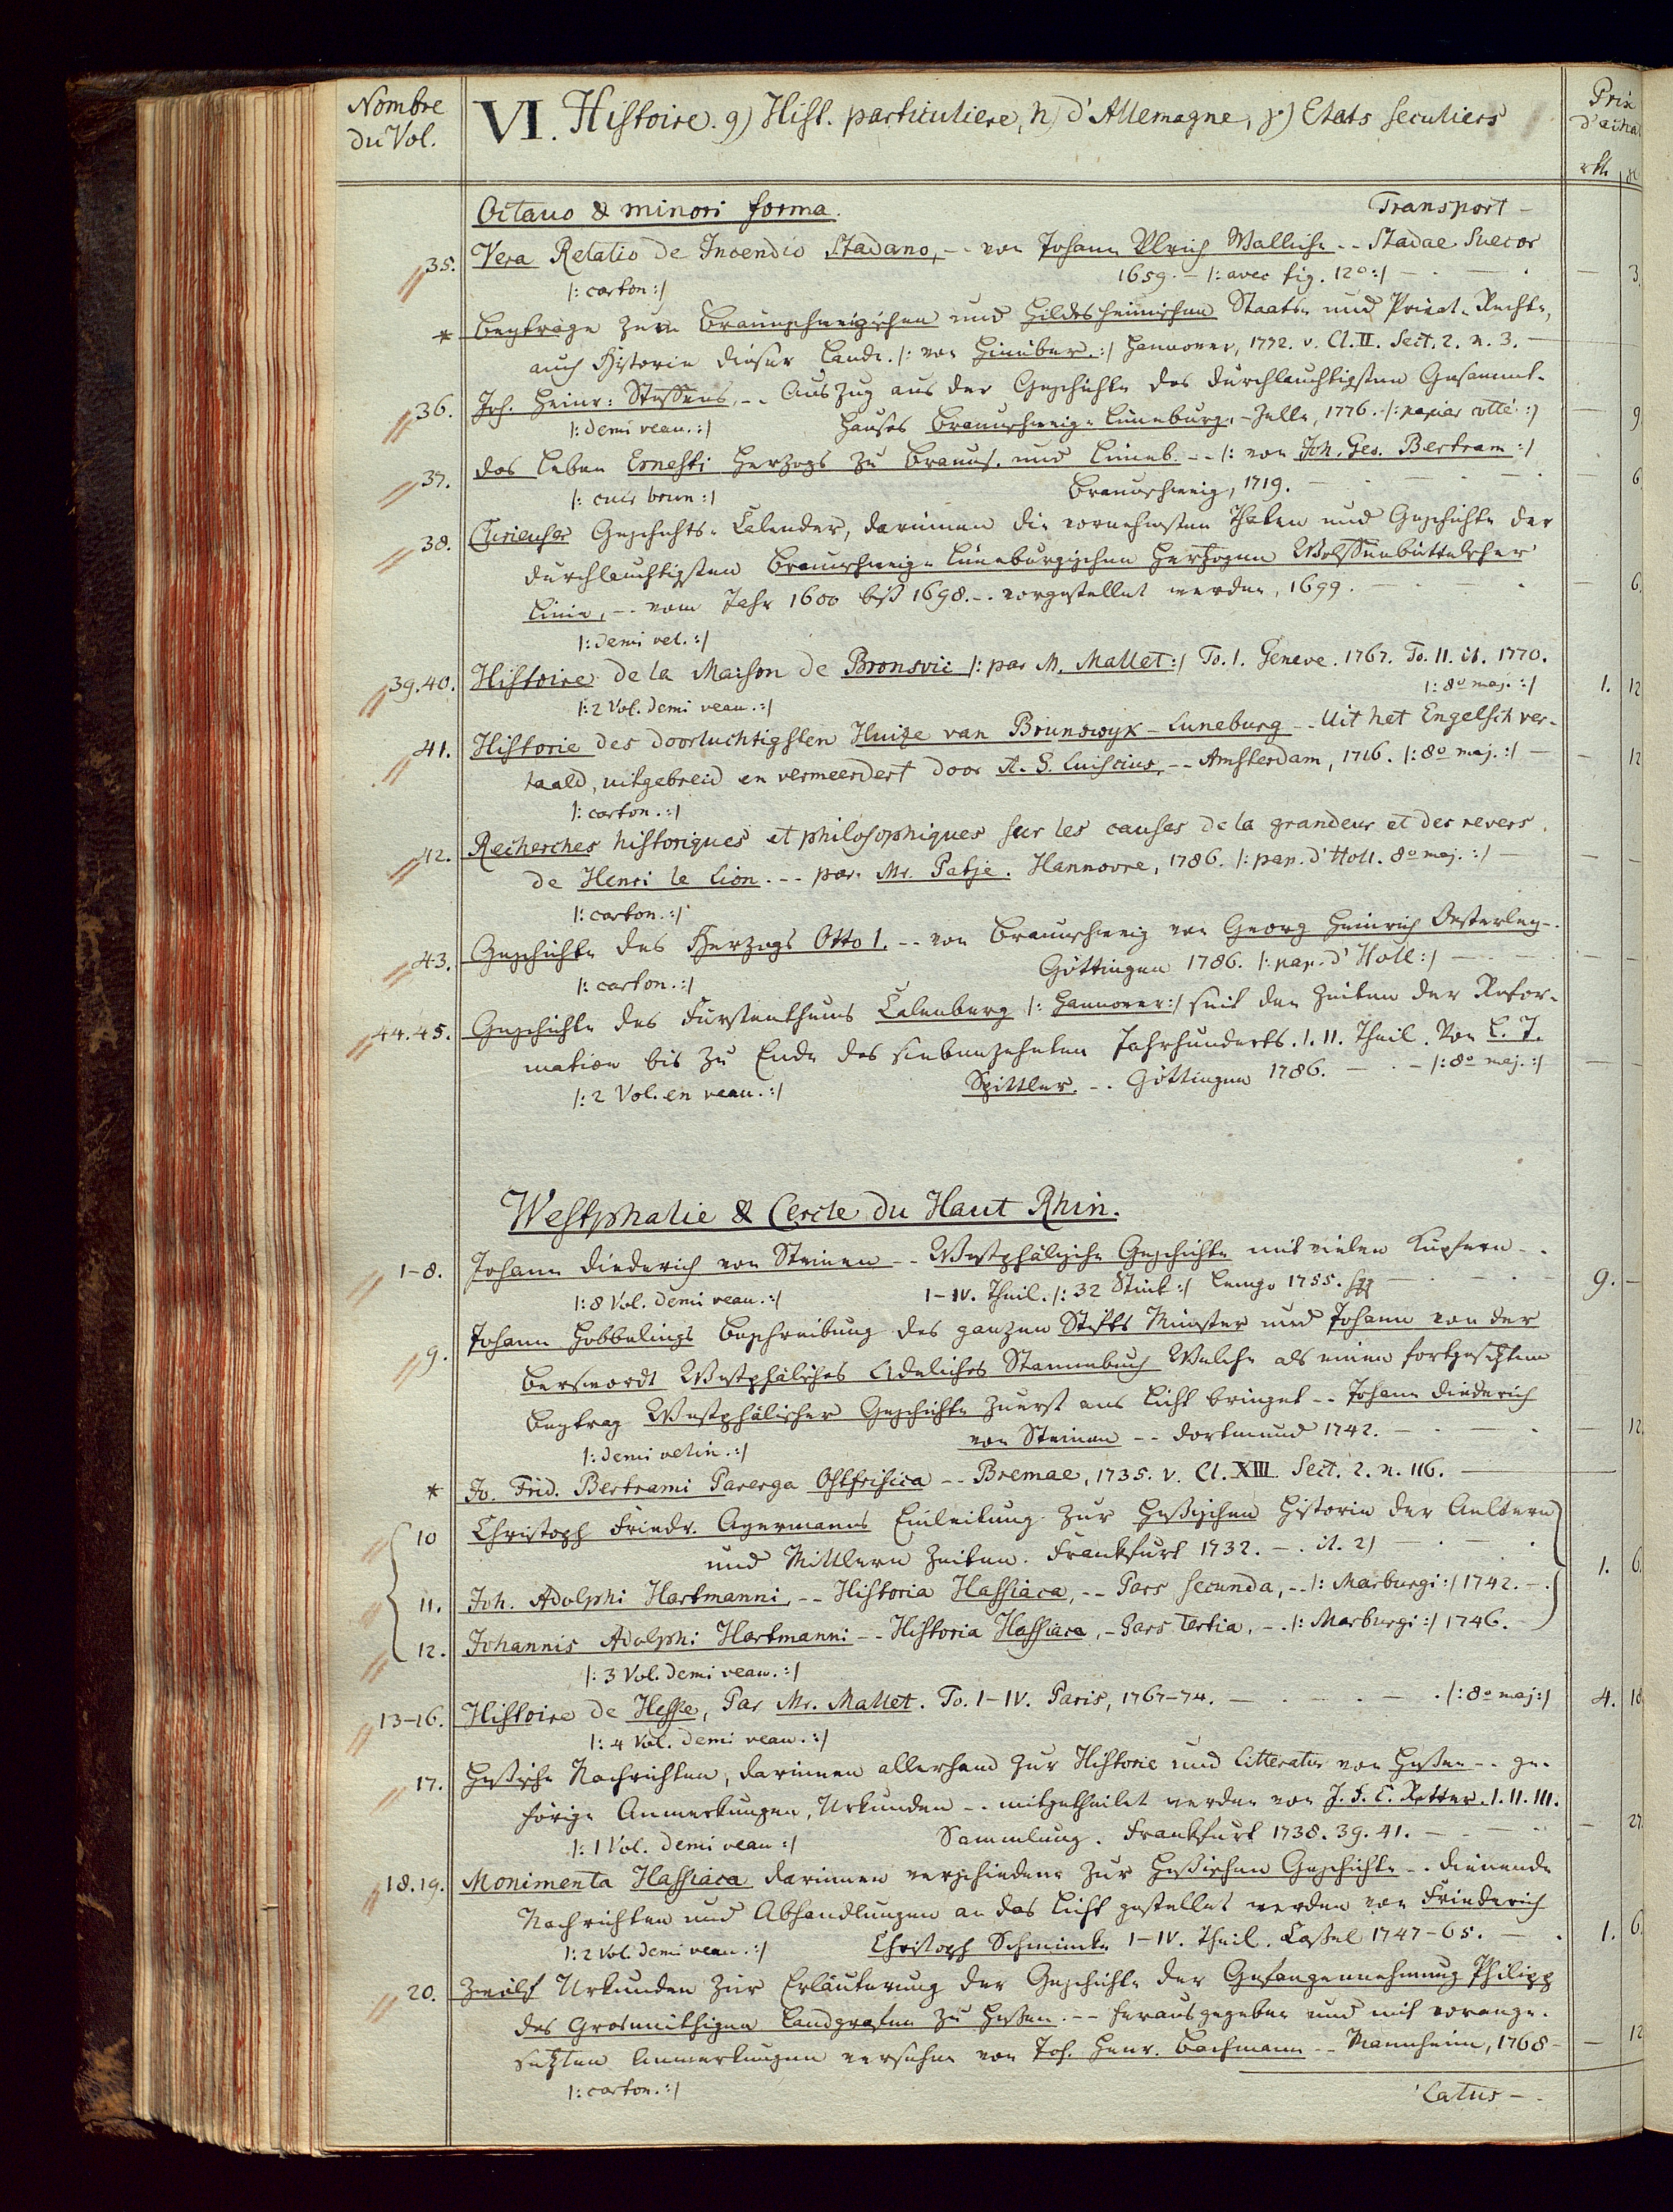 Nombre du Vol.
VI. Histoire. g) Hist. particuliere, h) d'Allemagne, γ) Etats seculiers
Prix d'acha
rth
Octavo & minori forma. Transport -
35. Vera Relatio de Incendio Stadano, -- von Johann Ulrich Wallich -- Stadae Suecor
1659. - /: avec fig. 12o :/ - 3.
/: carton :/
* Beyträge zum Braunschweigischen und Hildesheimischen Staats- und Privat-Rechte,
auch Historie dieser Lande. /: von Hinüber. :/ Hannover, 1772. v. Cl. II. Sect. 2. n. 3. -
36. Joh. Heinr: Steffens, -- Auszug aus der Geschichte des Durchlauchtigsten Gesammt-
/: demi veau. :/ Hauses Braunschweig-Lüneburg. - Zelle, 1776. /: papier collé :/ - 9.
37. Das Leben Ernesti Herzogs zu Brauns. und Lüneb. -- /: von Joh. Geo. Bertram :/
/: cuir brun :/ Braunschweig, 1719. - 6
38. Curieuser Geschichts-Calender, darinnen die vornehmsten Thaten und Geschichte der
Durchlauchtigsten Braunschweig-Lüneburgischen Hertzogen Wolffenbüttelscher
Linie, -- vom Jahr 1600 biß 1698. -- vorgestellet werden, 1699. - 6.
/: demi vel. :/
39.40. Histoire de la Maison de Bronsvic /: par M. Mallet :/ To. I. Geneve. 1767. To. II. it. 1770.
/: 2 Vol. demi veau. :/ /: 8o maj. :/ 1. 12
41. Historie des doorluchtigsten Huize van Brunswyk-Luneburg -- Uit het Engelsch ver-
taald, uitgebreid en vermeerdert door A. G. Luiscius, -- Amsterdam, 1716. /: 8o maj. :/ - 12
/: carton. :/
42. Recherches historiques et philosophiques sur les causes de la grandeur et des revers
de Henri le Lion. -- par Mr. Patje. Hannovre, 1786. /: pap. d'Holl. 8o maj. :/ -
/: carton. :/
43. Geschichte des Herzogs Otto I. -- von Braunschweig von Georg Heinrich Oesterley --
/: carton. :/ Göttingen 1786. /: pap. d'Holl :/ -
44.45. Geschichte des Fürstenthums Calenberg /: Hannover :/ seit den Zeiten der Refor-
mation bis zu Ende des siebenzehnten Jahrhunderts. I. II. Theil. Von L. T.
/: 2 Vol. en veau. :/ Spittler. -- Göttingen 1786. - /: 8o maj. :/
Westphalie & Cercle du Haut Rhin.
1-8. Johann Diederich von Steinen -- Westphälische Geschichte mit vielen Kupfern --
/: 8 Vol. demi veau. :/ I-IV. Theil. /: 32 Stück :/ Lemgo 1755. - 9. -
9. Johann Hobbelings Beschreibung des ganzen Stifts Münster und Johann von der
Berswordt Westphälisches Adeliches Stammbuch Welche als einen fortgesetzten
Beytrag Westphälischer Geschichte zuerst ans Licht bringet -- Johann Diederich
/: demi velin. :/ von Steinen -- Dortmund 1742. - 12.
* Jo. Frid. Bertrami Parerga Ostfrisica -- Bremae, 1735. v. Cl. XIII. Sect. 2. n. 116. -
10 Christoph Friedr. Ayermanns Einleitung zur Heßischen Historie der Aeltern
und Mittlern Zeiten. Frankfurt 1732. - it. 2) -
11. Joh. Adolphi Hartmanni, -- Historia Hassiaca, -- Pars secunda, -- /: Marburgi :/ 1742. - 1. 6.
12. Johannis Adolphi Hartmanni -- Historia Hassiaca, - Pars Tertia, -- /: Marburgi :/ 1746.
/: 3 Vol. demi veau. :/
13-16. Histoire de Hesse, Par Mr. Mallet. To. I-IV. Paris, 1767-74. - /: 8o maj :/ 4. 18
/: 4 Vol. demi veau. :/
17. Heßische Nachrichten, darinnen allerhand zur Historie und Litteratur von Heßen -- ge-
hörige Anmerkungen, Urkunden -- mitgetheilet werden von J. F. C. Retter. I. II. III.
/: 1 Vol. demi veau :/ Sammlung. Frankfurt 1738. 39. 41. - 27
18.19. Monimenta Hassiaca darinnen verschiedene zur Heßischen Geschichte -- dienende
Nachrichten und Abhandlungen an das Licht gestellet werden von Friederich
/: 2 Vol. demi veau. :/ Christoph Schmincke I-IV. Theil. Caßel 1747-65. - 1. 6.
20. Zwölf Urkunden zur Erläuterung der Geschichte der Gefangennehmung Philipp
des Grosmüthigen Landgrafen zu Heßen. -- herausgegeben und mit vorange-
setzten Anmerkungen versehen von Joh. Henr. Bachmann -- Mannheim, 1768 - 12
/: carton. :/ Latus -